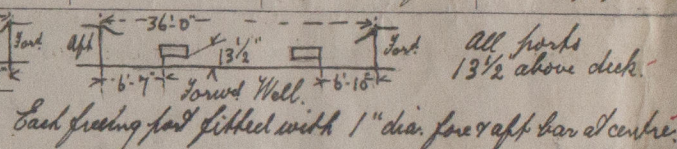 36'-0"
Ford. Aft Ford. All ports
13½" 13½" above deck.
6'-7" 6'-10"
Forwd Well.
Each freeing port fitted with 1" dia. fore & aft bar at centre.